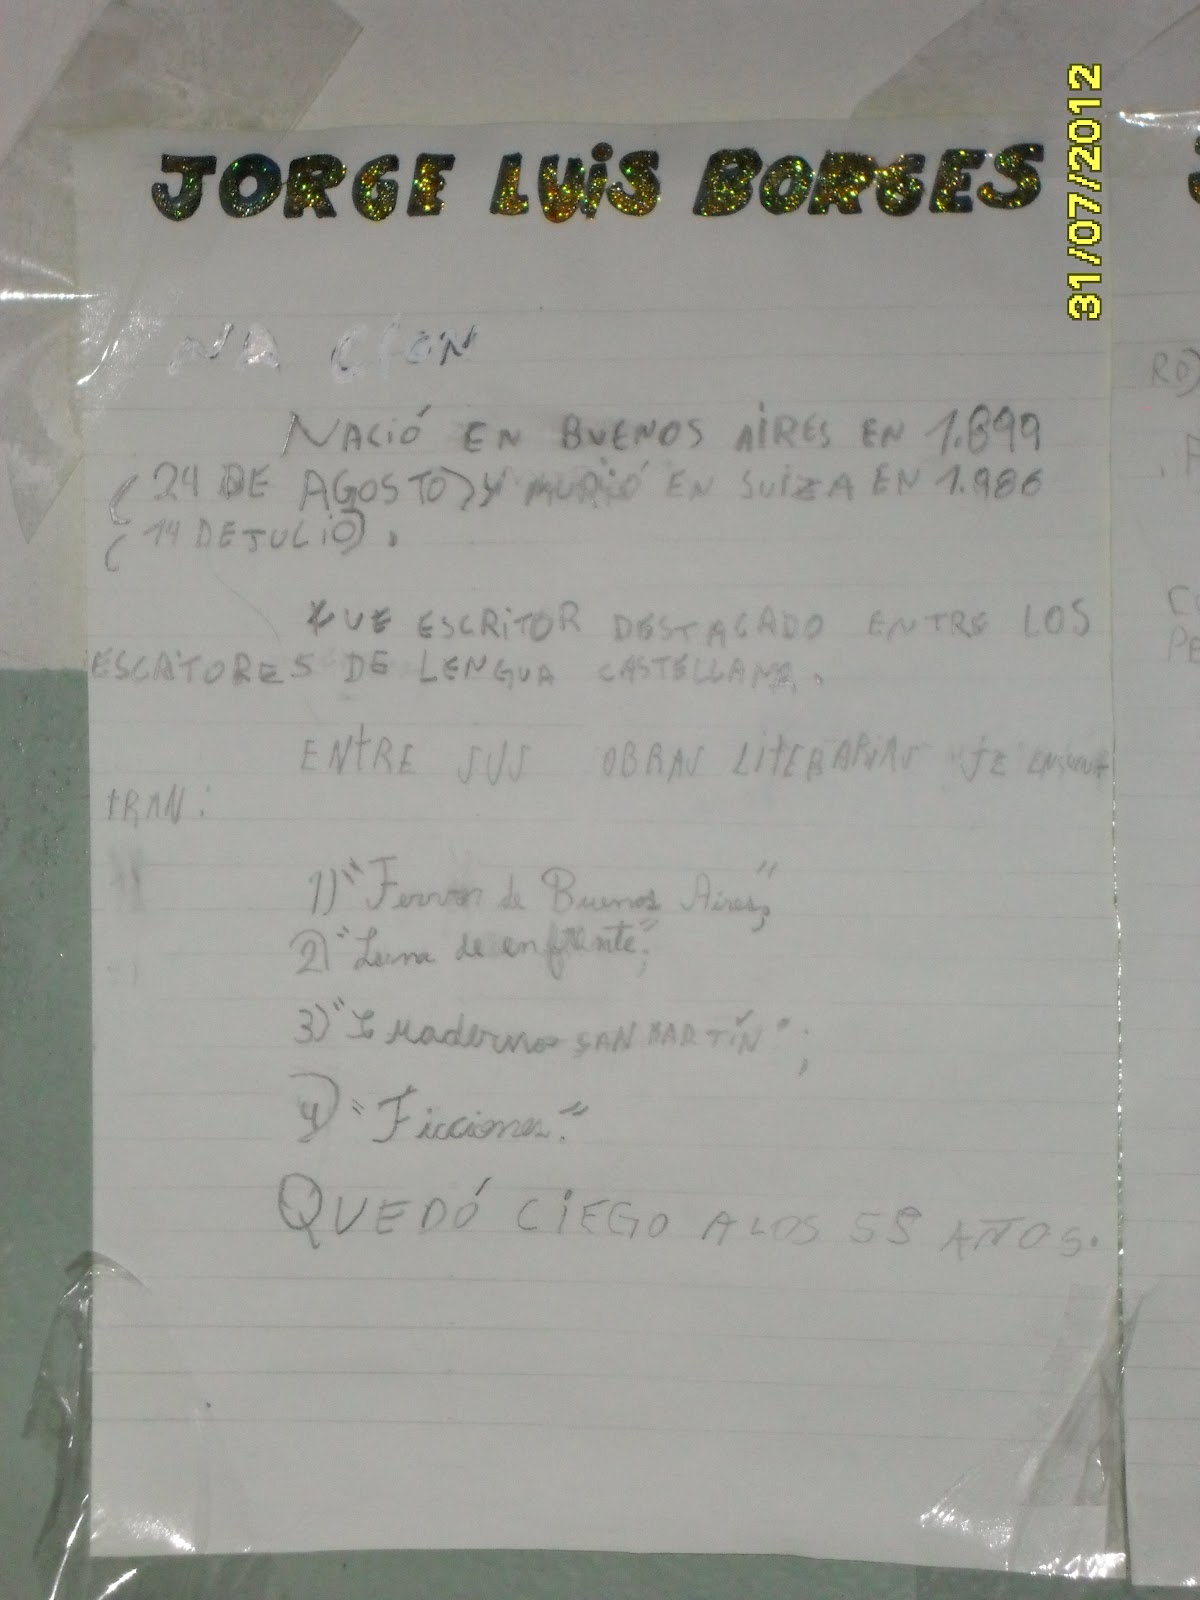 JORGE LUiS BORGES
31/07/2012
NACIÓ EN BUENOS AIRES EN 1.899
(24 DE AGOSTO) Y MURIÓ EN SUIZA EN 1.986
(14 DE JULIO).
FUE ESCRITOR DESTACADO ENTRE LOS
ESCRITORES DE LENGUA CASTELLANA.
ENTRE SUS OBRAS LITERARIAS SE ENCUEN
TRAN:
1) "Fervor de Buenos Aires";
2) "Luna de enfrente";
3) " SAN MARTÍN";
4) "Ficciones."
QUEDÓ CIEGO A LOS 58 AÑOS.